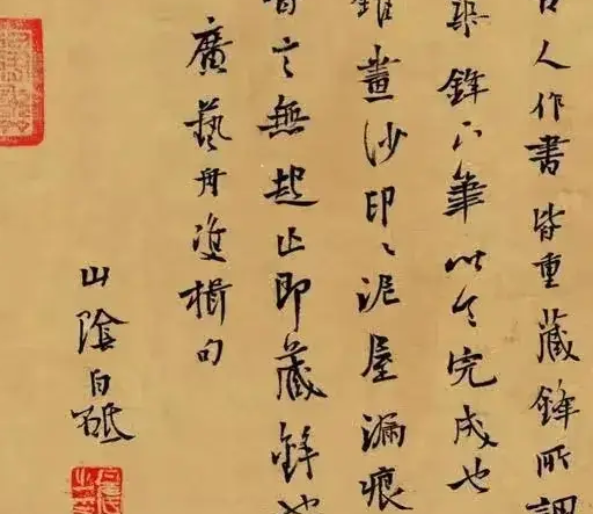 古人作書皆重藏鋒所謂
築鋒下筆皆令完成也
錐畫沙印印泥屋漏痕
皆言無起止即藏鋒也
廣藝舟雙楫句
山陰白砥